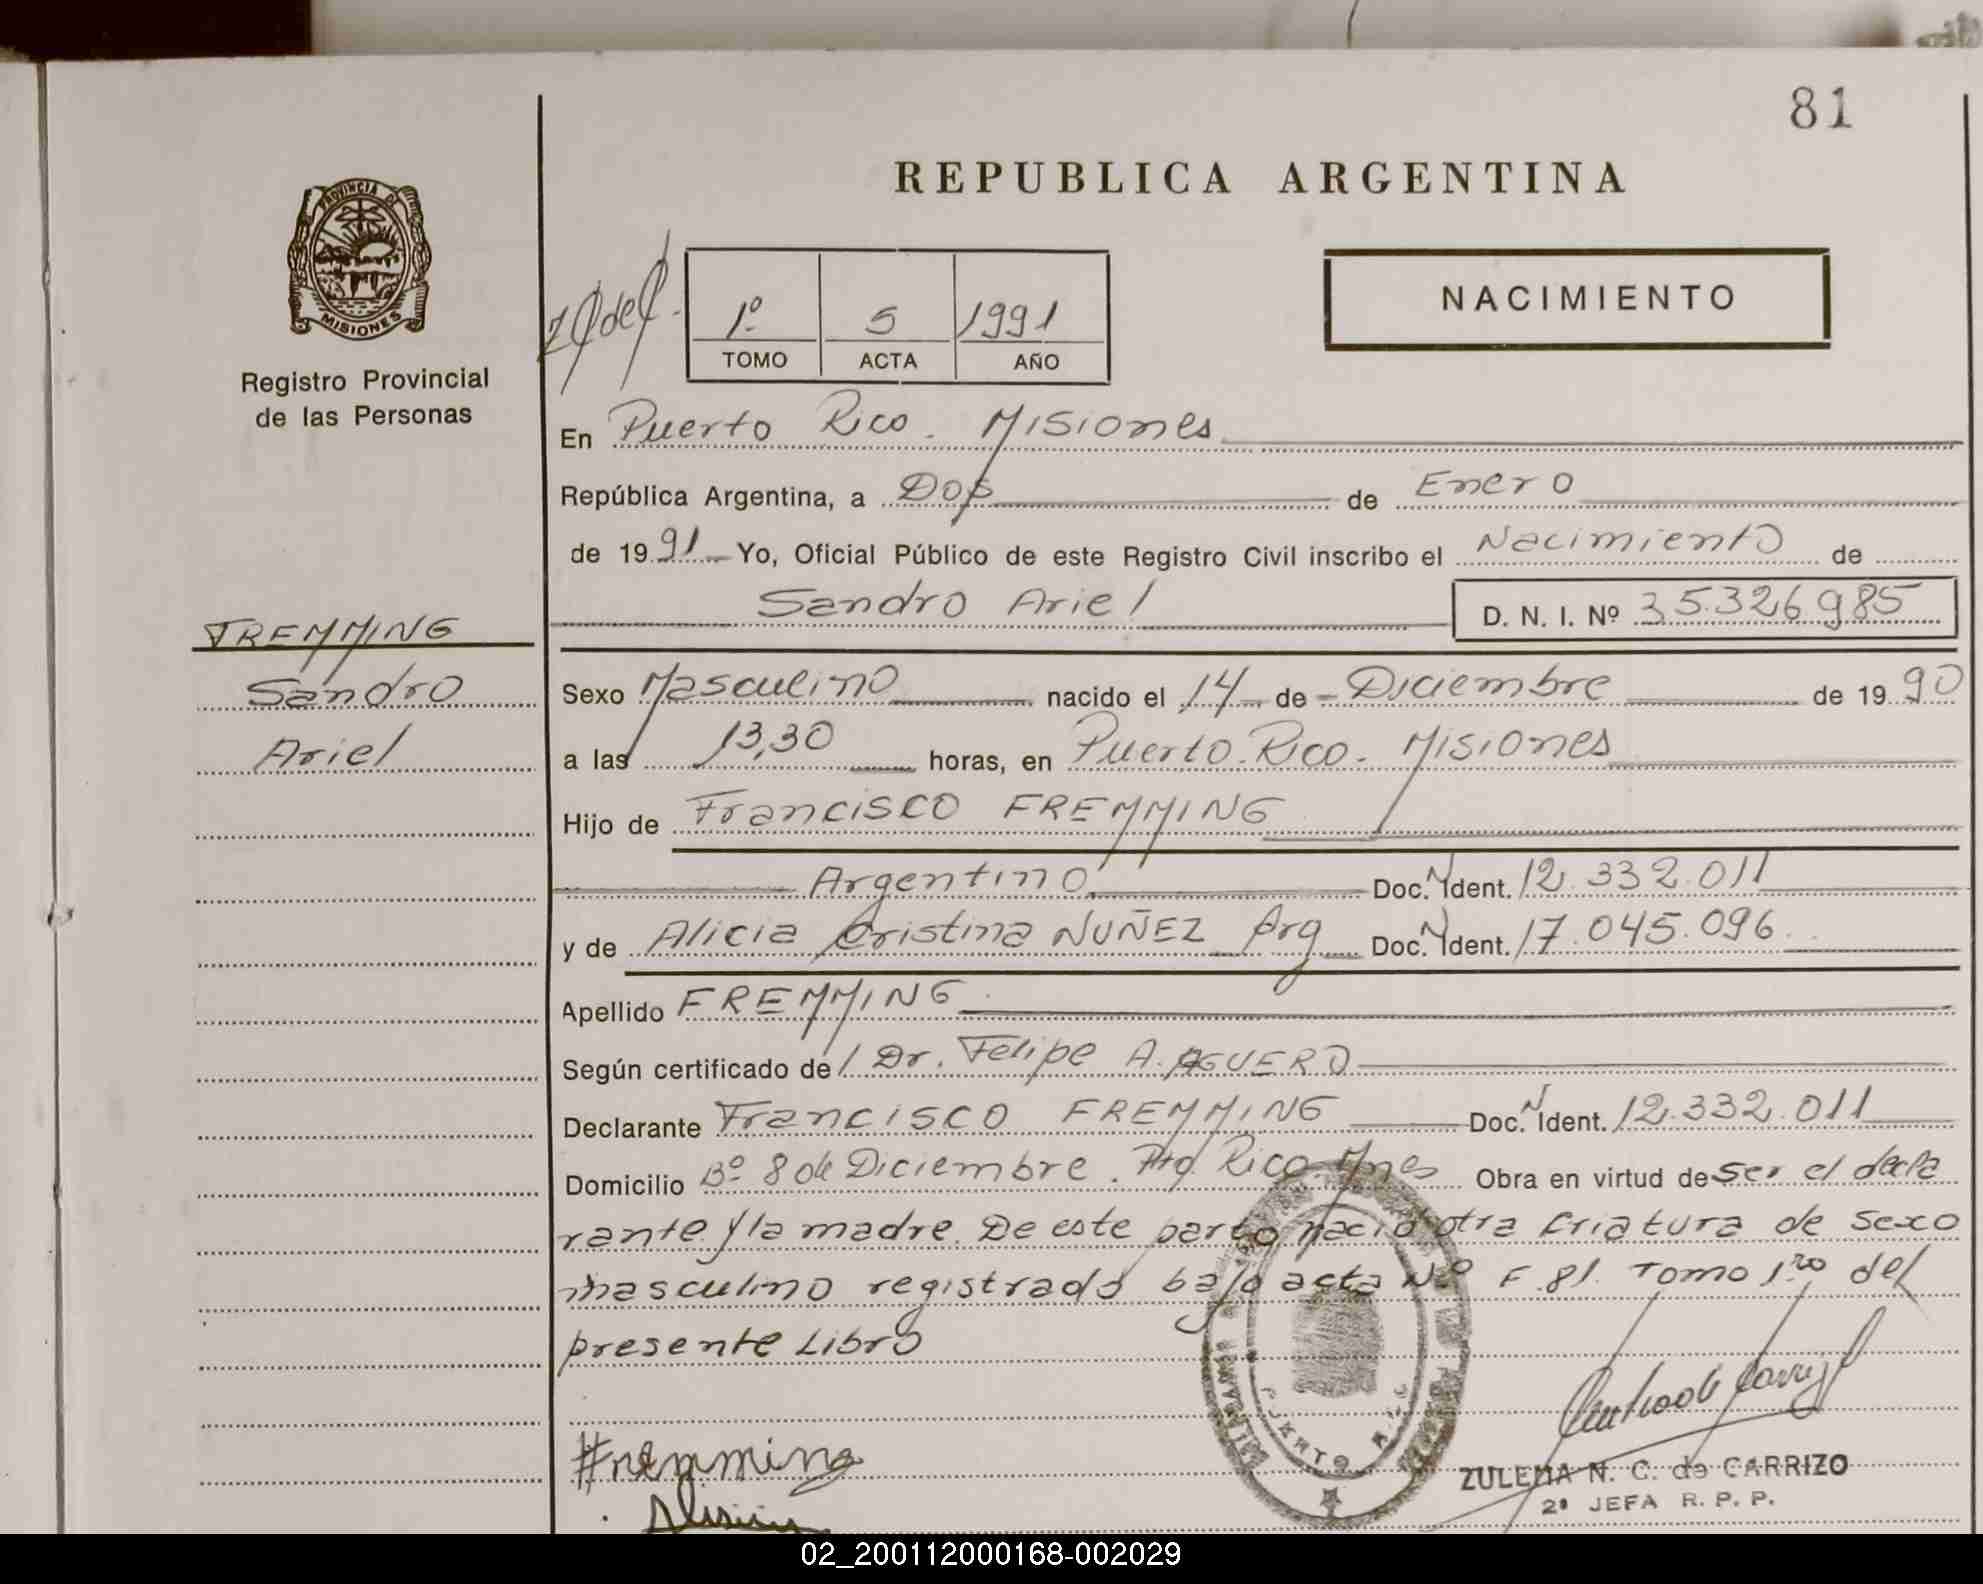 81
REPUBLICA ARGENTINA
PROVINCIA DE
MISIONES
Registro Provincial
de las Personas
1º 5 1991
TOMO ACTA AÑO
NACIMIENTO
En Puerto Rico - Misiones
República Argentina, a Dos de Enero
de 1991 Yo, Oficial Público de este Registro Civil inscribo el Nacimiento de
Sandro Ariel D. N. I. Nº 35.326.985
FREMMING
Sandro
Ariel
Sexo Masculino nacido el 14 de Diciembre de 1990
a las 13,30 horas, en Puerto Rico - Misiones
Hijo de Francisco FREMMING
Argentino Doc. N Ident. 12.332.011
y de Alicia Cristina NUÑEZ Arg Doc. N Ident. 17.045.096
Apellido FREMMING
Según certificado de Dr. Felipe A. AGUERO
Declarante Francisco FREMMING Doc. N Ident. 12.332.011
Domicilio Bº 8 de Diciembre. Pto Rico Mnes Obra en virtud de ser el decla
rante y la madre. De este parto nació otra criatura de sexo
masculino registrado bajo acta Nº F.81. Tomo 1ro del
presente Libro
Fremming
ZULEMA N. C. de CARRIZO
2ª JEFA R. P. P.
02_200112000168-002029